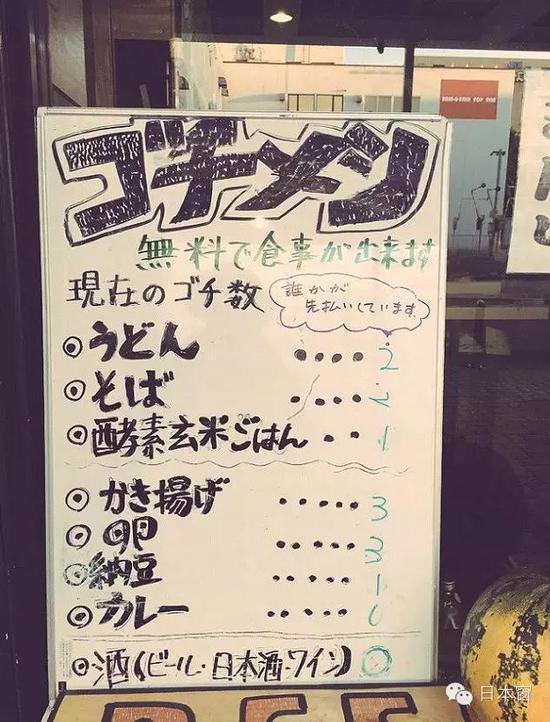 ゴチメン
無料で食事が出来ます
現在のゴチ数
誰かが
先払いしています。
◎うどん ••••• 2
◎そば ••••• 2
◎酵素玄米ごはん ••• 1
◎かき揚げ ••••• 3
◎卵 •••••
◎納豆 ••••• 1
◎カレー ••••• 0
◎酒(ビール・日本酒・ワイン) ◎
日本窗